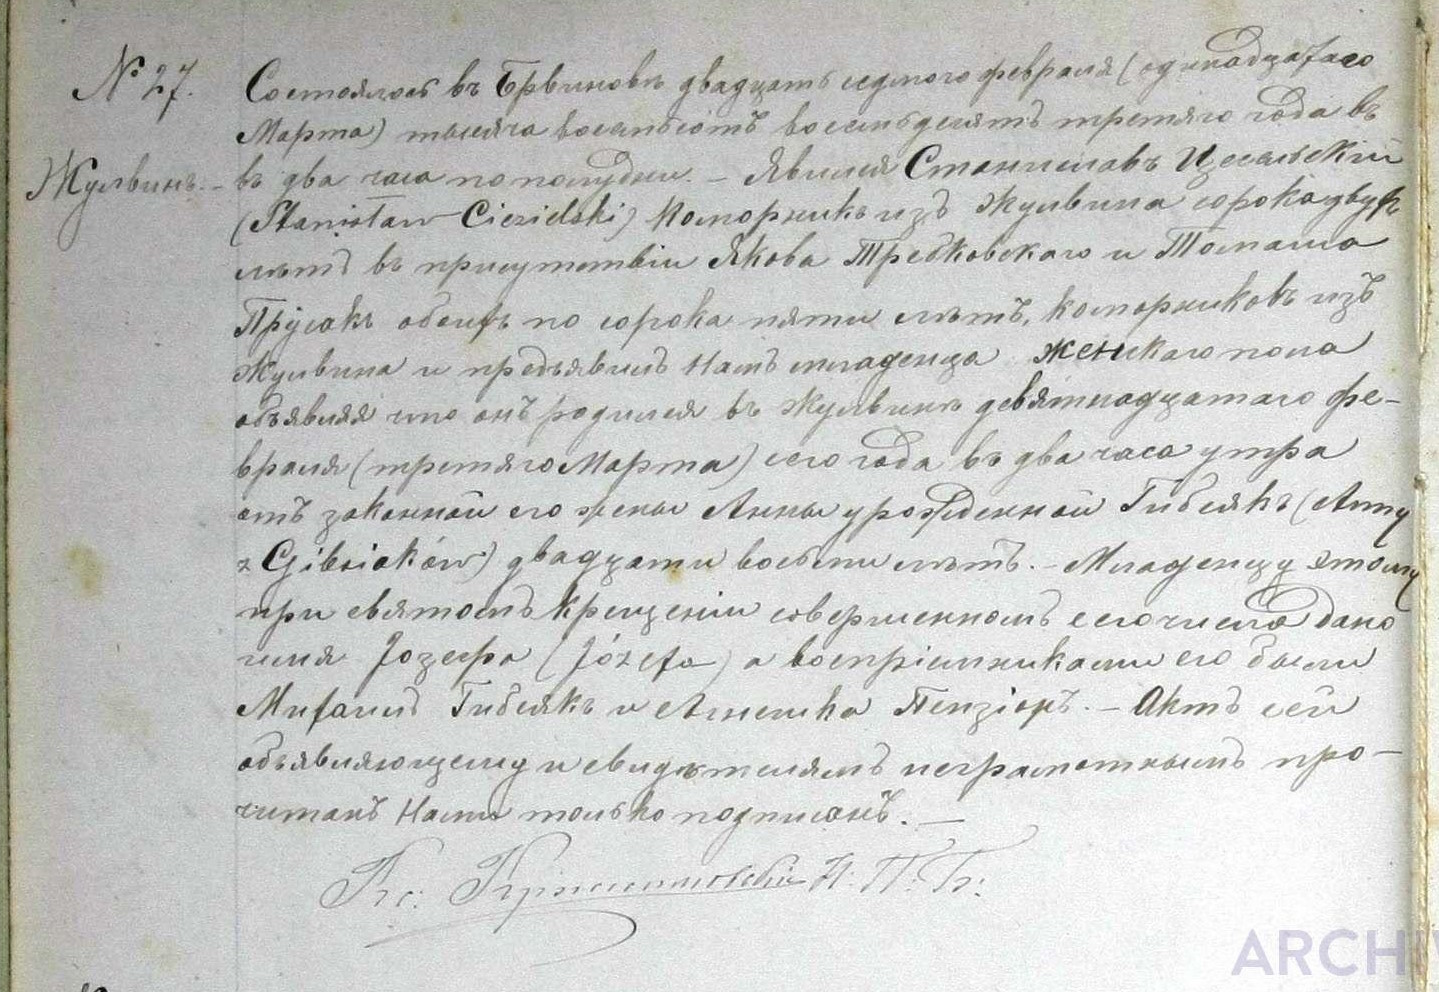 № 27. Состоялось въ Брвиновѣ двадцать седмого февраля (одинадцатаго
Марта) тысяча восемьсотъ восемьдесятъ третяго года въ
Жулвинъ. – въ два часа по полудни. – Явился Станиславъ Цесельскій
(Stanisław Ciesielski) коморникъ изъ Жулвина сорока двухъ
лѣтъ въ присутствіи Якова Требковскаго и Томаша
Прусакъ обоихъ по сорока пяти лѣтъ, коморниковъ изъ
Жулвина и предъявилъ Намъ младенца женскаго пола
объявляя что онъ родился въ Жулвинѣ девятнадцатаго фе-
враля (третяго Марта) сего года въ два часа утра
отъ законной его жены Анны урожденной Гибсякъ (Anny
z Gibsiaków) двадцати восьми лѣтъ. – Младенцу этому
при святомъ крещеніи совершенномъ сего числа дано
имя Јозефа (Józefa) а воспріемниками его были
Михаилъ Гибсякъ и Агнешка Пензіоръ. – Актъ сей
объявляющему и свидѣтелямъ неграмотнымъ про-
читанъ Нами только подписанъ. –
Кс: Н: П: Б:
ARCHI